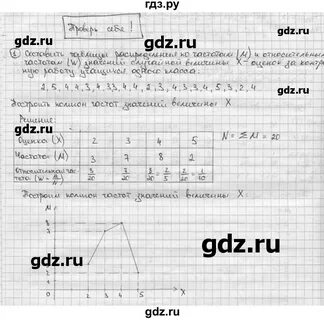 гдз.ру
Проверь себе!
1 Составить таблицы распределения по частотам (M) и относительным
частотам (W) значений случайной величины X - оценок за контроль-
ную работу учащихся одного класса:
2, 5, 4, 4, 3, 4, 3 3, 4, 4, 2, 3, 4, 3, 4, 5, 3, 2, 4
Построить полигон частот значений величины X
Решение:
Оценка (X) 2 3 4 5
N = ΣM = 20
Частота (M) 3 7 8 2
Относительная час-
тота (W = M/N) 3/20 7/20 8/20 = 2/5 2/20 = 1/10
Построим полигон частот значений величины X:
M
8
6
4
2
0 2 3 4 5 X
гдз.ру